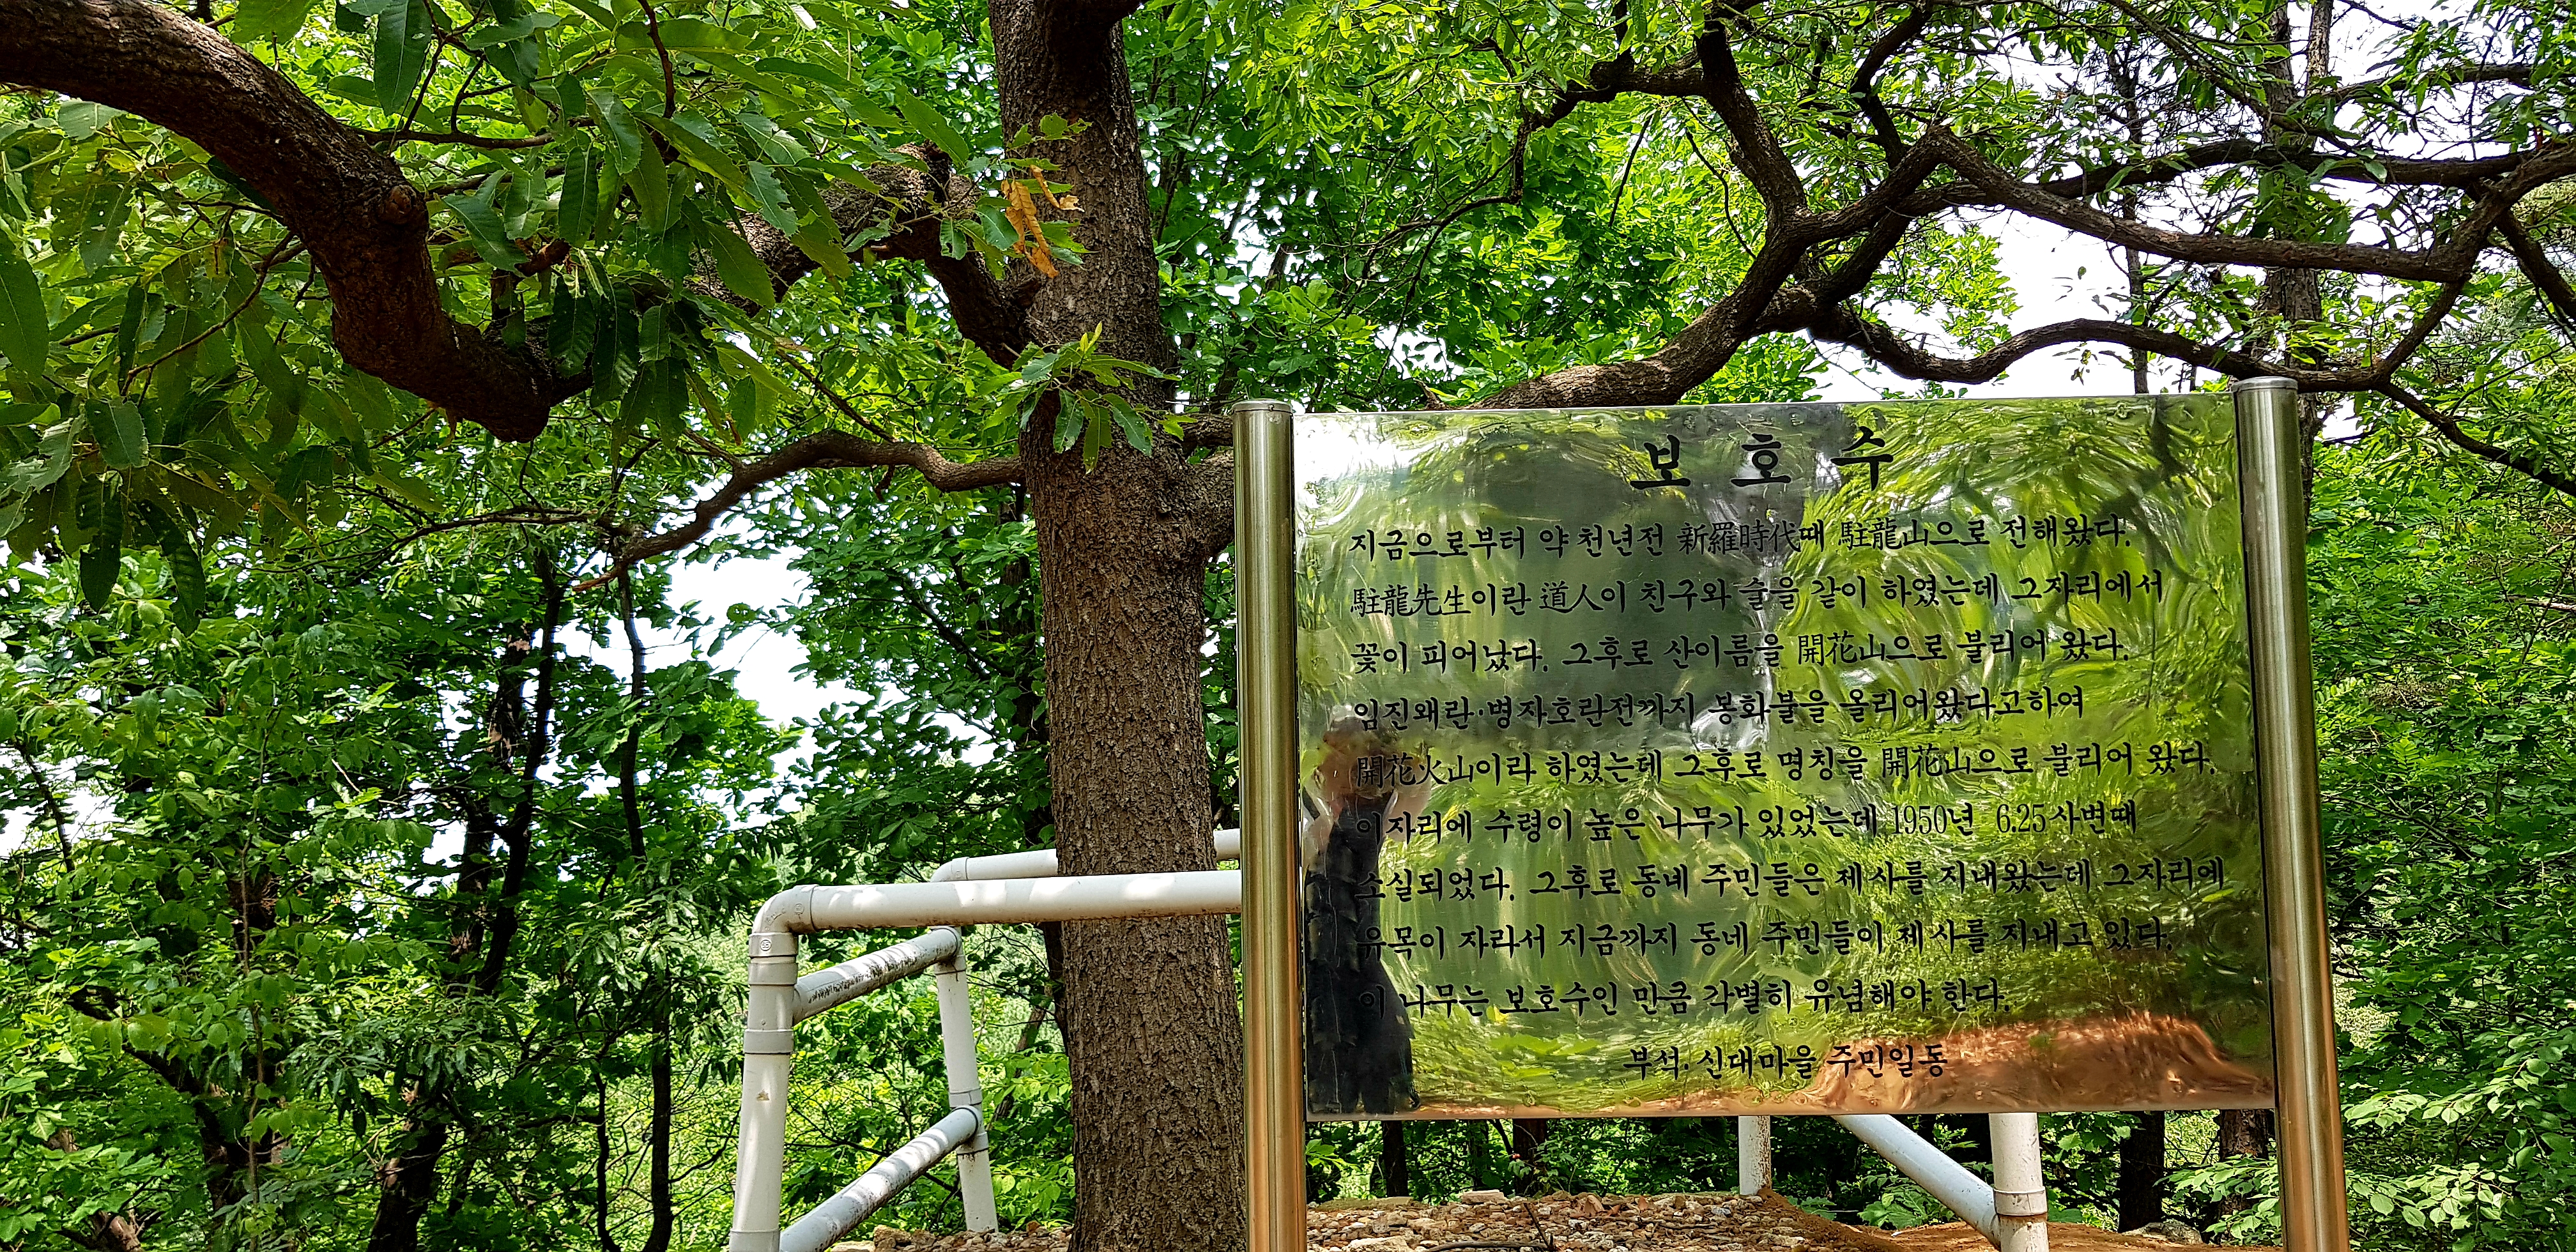 보호수
지금으로부터 약 천년전 新羅時代때 駐龍山으로 전해왔다.
駐龍先生이란 道人이 친구와 술을 같이 하였는데 그자리에서
꽃이 피어났다. 그후로 산이름을 開花山으로 불리어 왔다.
임진왜란·병자호란전까지 봉화불을 올리어왔다고하여
開花火山이라 하였는데 그후로 명칭을 開花山으로 불리어 왔다.
이자리에 수령이 높은 나무가 있었는데 1950년 6.25사변때
소실되었다. 그후로 동네 주민들은 제사를 지내왔는데 그자리에
유목이 자라서 지금까지 동네 주민들이 제사를 지내고 있다.
이 나무는 보호수인 만큼 각별히 유념해야 한다.
부석·신대마을 주민일동